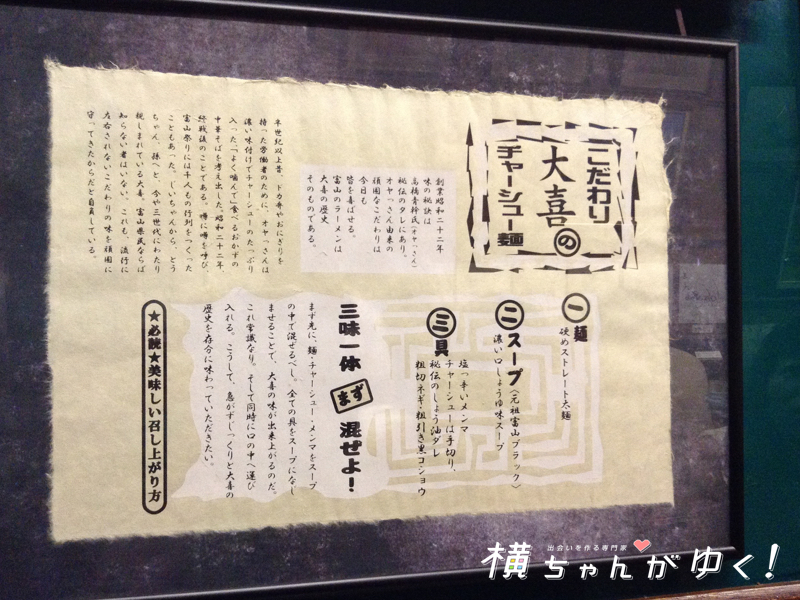 こだわり
大喜の
チャーシュー麺
創業昭和二十二年
味の秘訣は
高橋青幹氏(オヤっさん)
秘伝のタレにあり。
オヤっさん由来の
頑固なこだわりは
今日も
皆を喜ばせる。
富山のラーメンは
大喜の歴史、
そのものである。
半世紀以上昔、ドカ弁やおにぎりを
持った労働者のために、オヤっさんは
濃い味付けでチャーシューのたっぷり
入った「よく噛んで」食べるおかずの
中華そばを考え出した。昭和二十二年
終戦後のことである。噂に噂を呼び、
富山祭りには千人もの行列をつくった
こともあった。じいちゃんから、とう
ちゃん、孫へと、今や三世代にわたり
親しまれている大喜。富山県民ならば
知らない者はいない。これも、流行に
左右されないこだわりの味を頑固に
守ってきたからだと自負している。
一 麺
硬めストレート太麺
二 スープ(元祖富山ブラック)
濃い口しょうゆ味スープ
三 具
塩っ辛いメンマ
チャーシューは手切り、
秘伝のしょう油ダレ
粗切ネギ・粗引き黒コショウ
三味一体 まず 混ぜよ!
まず先に、麺・チャーシュー・メンマをスープ
の中で混ぜるべし。全ての具をスープになじ
ませることで、大喜の味が出来上がるのだ。
これ常識なり。そして同時に口の中へ運び
入れる。こうして、急がずじっくりと大喜の
歴史を存分に味わっていただきたい。
★必読★美味しい召し上がり方
出会いを作る専門家
横ちゃんがゆく!